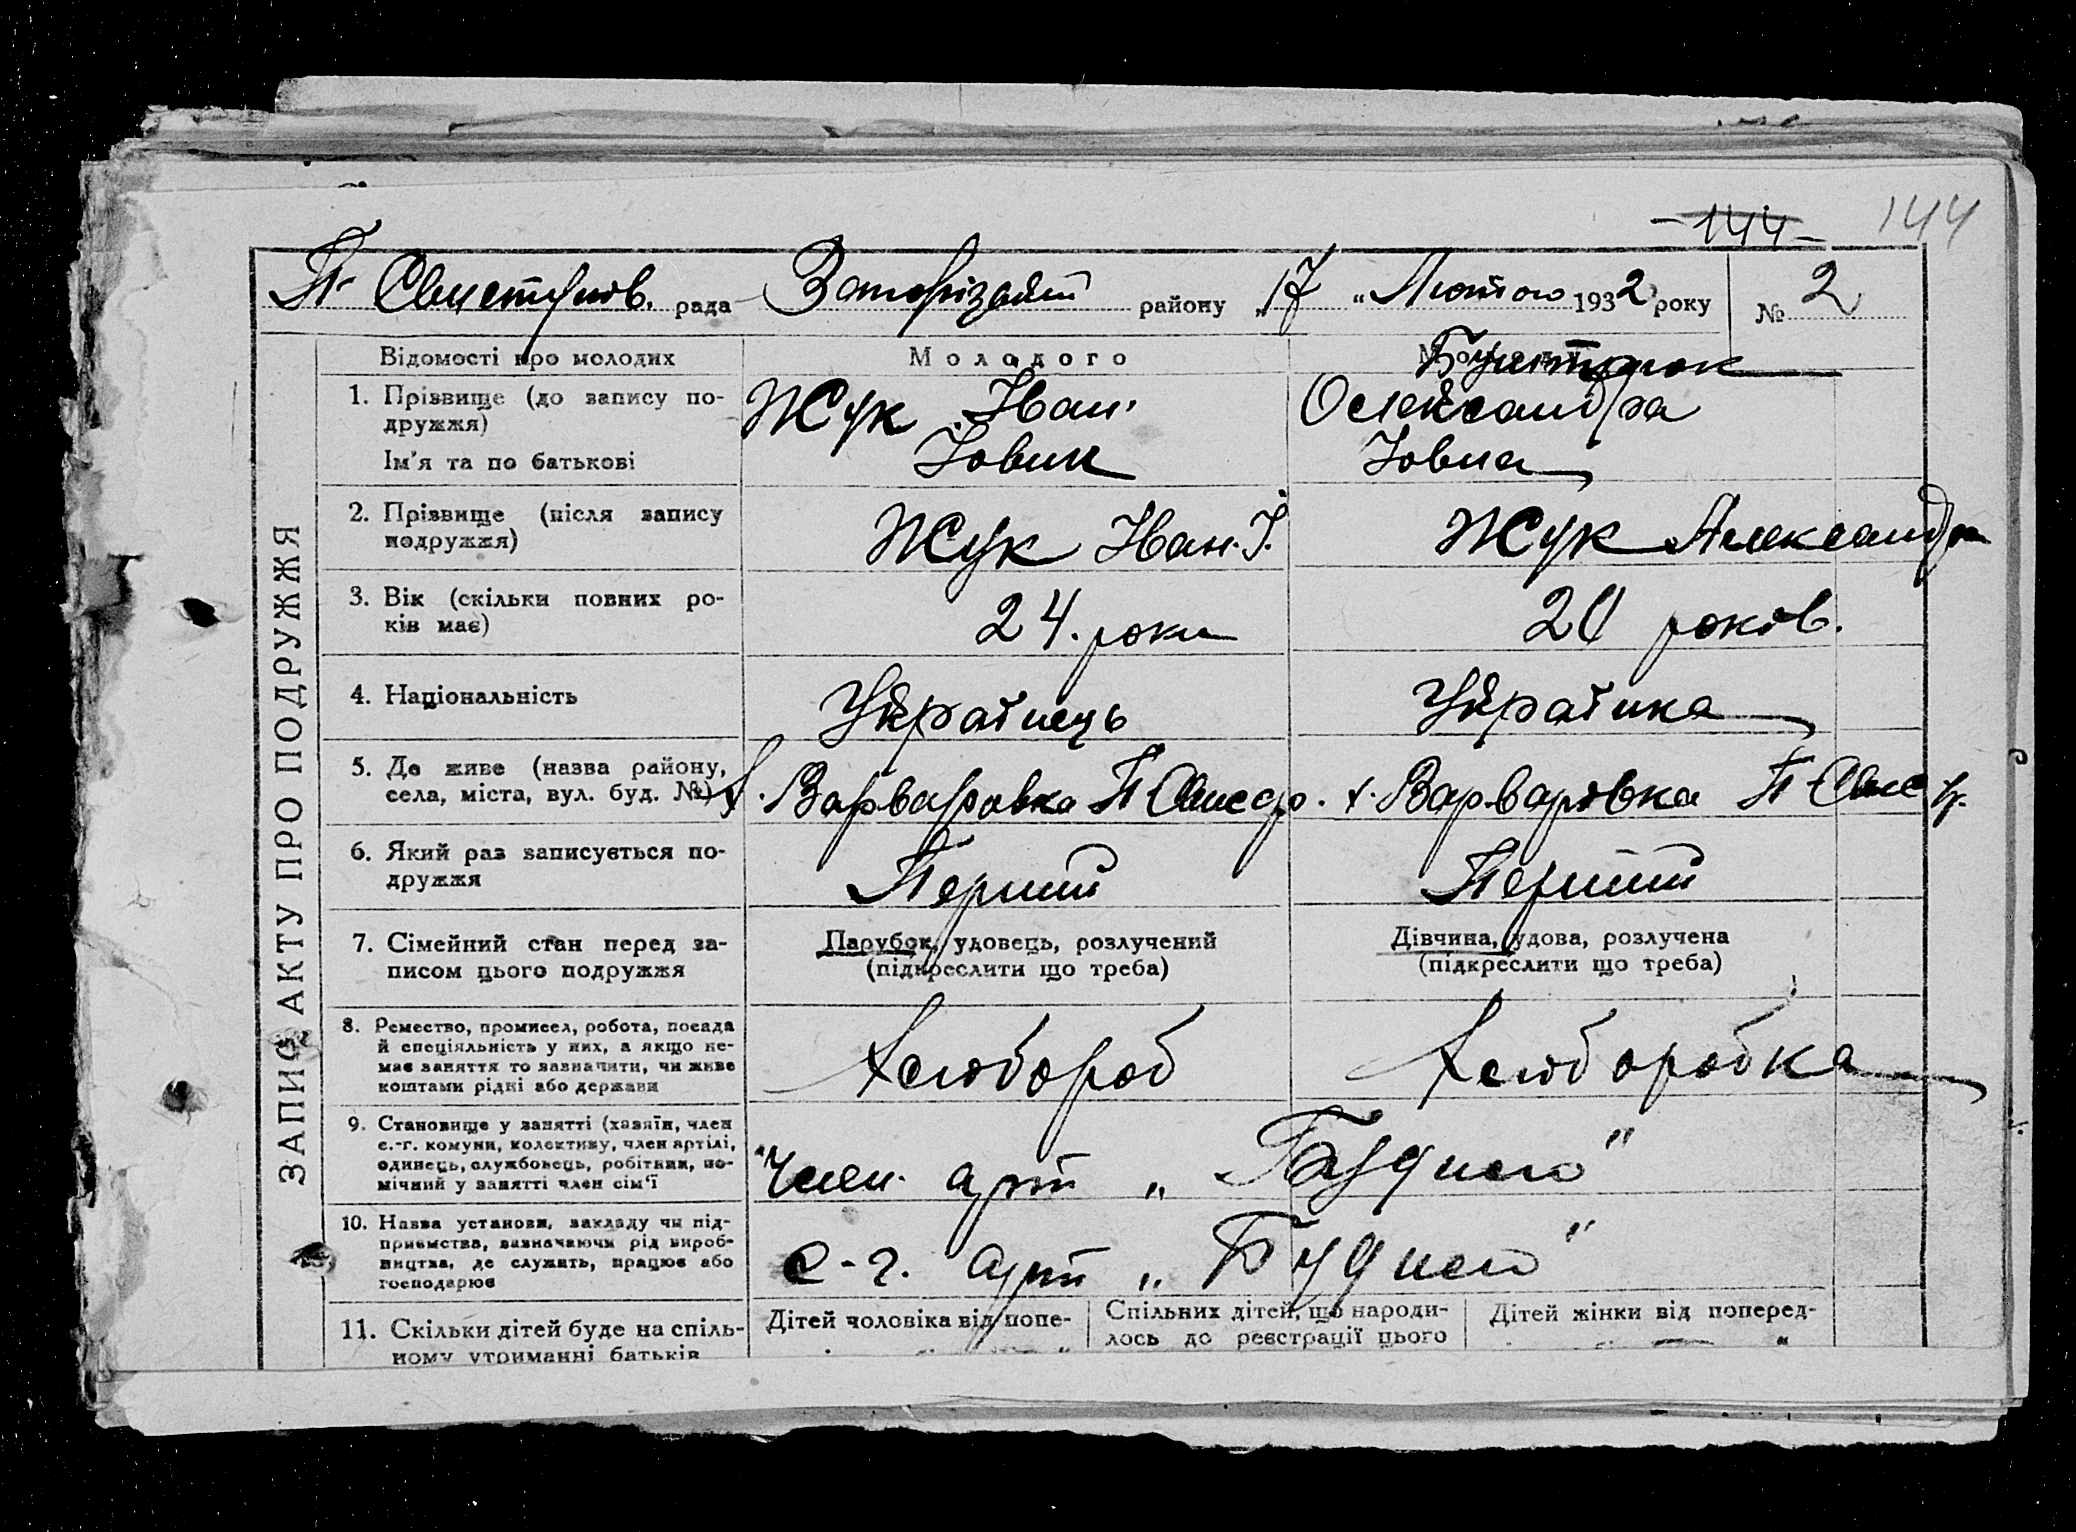 -144- 144
П- Свистунов. рада Запорізький району „17 “ Лютого 1932 року № 2
ЗАПИС АКТУ ПРО ПОДРУЖЖЯ
Відомості про молодих Молодого
1. Прізвище (до запису по-
дружжя)
Ім'я та по батькові
Жук Іван.
Іовик
Олександра
Іовна
2. Прізвище (після запису
подружжя)
Жук Іван. І.
Жук Александра
3. Вік (скільки повних ро-
ків має)
24. роки
20 років.
4. Національність
Українець
Українка
5. Де живе (назва району,
села, міста, вул. буд. №)
х. Варваровка П-Свистр.
х. Варваровка П-Свистр.
6. Який раз записується по-
дружжя
Перший
Перший
7. Сімейний стан перед за-
писом цього подружжя
Парубок, удовець, розлучений
(підкреслити що треба)
Дівчина, удова, розлучена
(підкреслити що треба)
8. Ремество, промисел, робота, посада
й спеціяльність у них, а якщо не-
має заняття то зазначити, чи живе
коштами рідні або держави
Хлібороб
Хліборобка
9. Становище у занятті (хазяїн, член
с.-г. комуни, колективу, член артілі,
одинець, службовець, робітник, по-
мічний у занятті член сім'ї
Член. арт „Будного"
10. Назва установи, закладу чи під-
приємства, зазначаючи рід вироб-
ництва, де служать, працює або
господарює
С-г. арт „Будного"
11. Скільки дітей буде на спіль-
ному утриманні батьків
Дітей чоловіка від попе-
Спільних дітей, що народи-
лось до реєстрації цього
Дітей жінки від поперед-